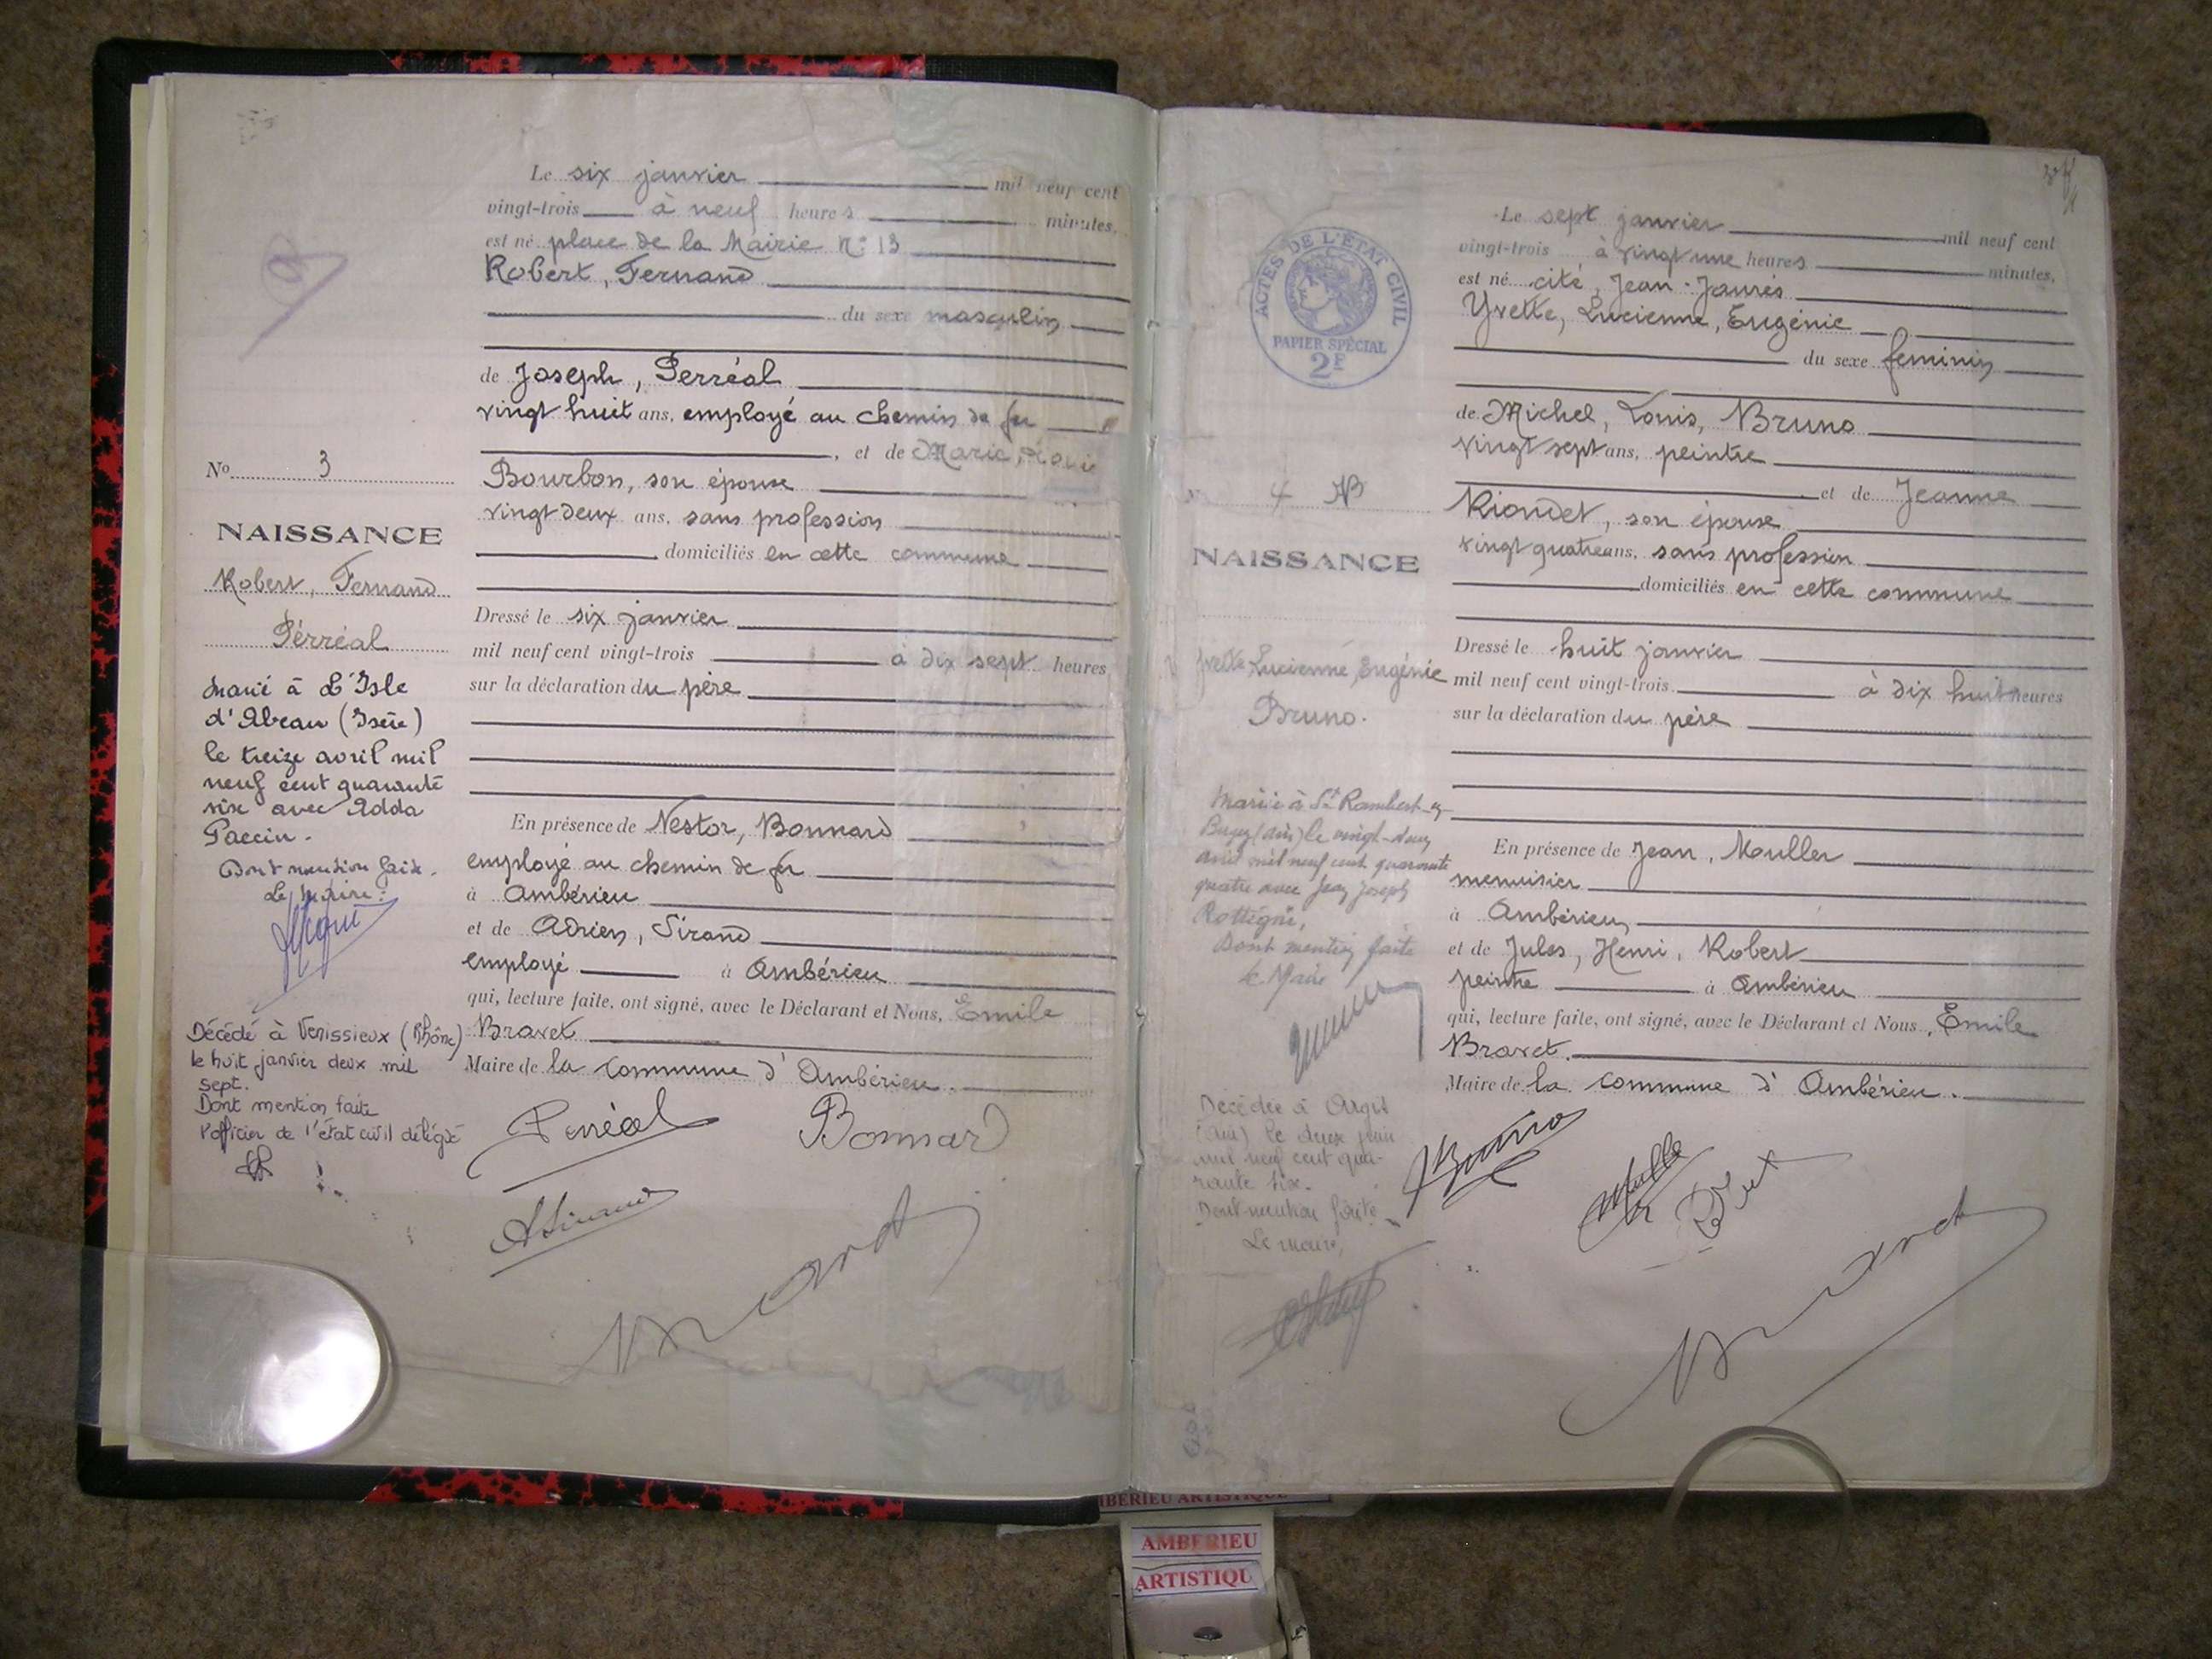 Le six janvier mil neuf cent
vingt-trois à neuf heures minutes,
est né place de la Mairie N° 13
Robert, Fernand
du sexe masculin
de Joseph, Perréal
vingt huit ans, employé au chemin de fer
, et de Marie,
Bourbon, son épouse
vingt deux ans, sans profession
domiciliés en cette commune
Dressé le six janvier
mil neuf cent vingt-trois à dix sept heures
sur la déclaration du père
En présence de Nestor, Bonnard
employé au chemin de fer
à Ambérieu
et de Adrien, Sirand
employé à Ambérieu
qui, lecture faite, ont signé, avec le Déclarant et Nous, Emile
Bravet
Maire de la commune d'Ambérieu.
Perréal
Bonnard
ASirand
Bravet
No 3
NAISSANCE
Robert, Fernand
Pérréal
Marié à L'Isle
d'Abeau (Isère)
le treize avril mil
neuf cent quarante
six avec Adda
Paccin.
Dont mention faite.
Le Maire:
Décédé à Venissieux (Rhône)
le huit janvier deux mil
sept.
Dont mention faite
l'officier de l'état civil délégué
ACTES DE L'ETAT CIVIL
PAPIER SPÉCIAL
2F
4 AB
NAISSANCE
Yvette Lucienne Eugénie
Bruno.
Marié à St Rambert-en-
Bugey (Ain) le vingt-deux
avril mil neuf cent quarante
quatre avec Jean Joseph
Dont mention faite
Le Maire
Décédée à Argis
(Ain) le deux juin
mil neuf cent qua-
rante six.
Dont mention faite
Le maire,
Le sept janvier mil neuf cent
vingt-trois à vingt une heures minutes,
est né cité, Jean-Jaurès
Yvette, Lucienne, Eugénie
du sexe feminin
de Michel, Louis, Bruno
vingt sept ans, peintre
et de Jeanne
Riondet, son épouse
vingt quatre ans, sans profession
domiciliés en cette commune
Dressé le huit janvier
mil neuf cent vingt-trois à dix huit heures
sur la déclaration du père
En présence de Jean, Mouller
menuisier
à Ambérieu
et de Jules, Henri, Robert
peintre à Ambérieu
qui, lecture faite, ont signé, avec le Déclarant et Nous, Emile
Bravet.
Maire de la commune d'Ambérieu.
Bruno
Bravet
AMBERIEU ARTISTIQUE
AMBERIEU
ARTISTIQU